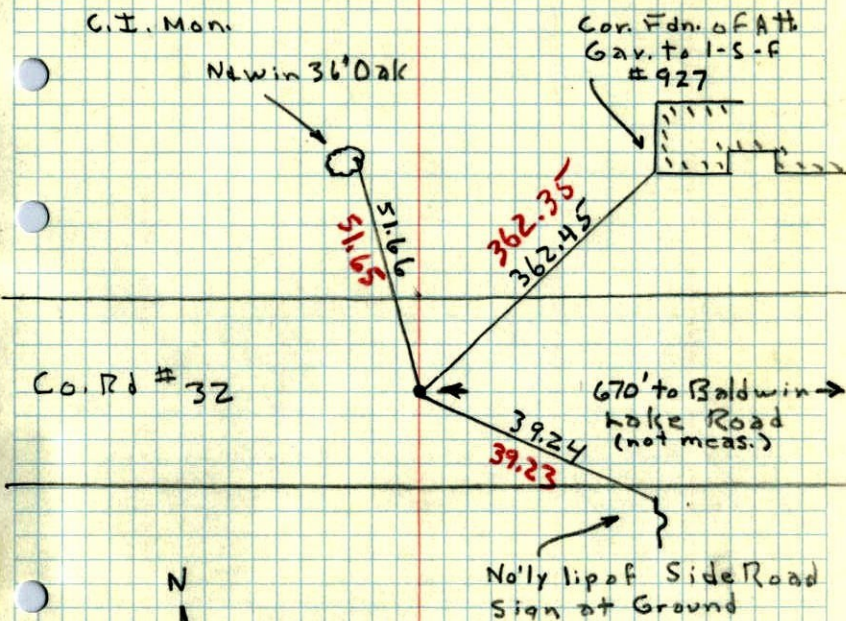 C.I. Mon.
Cor. Fdn. of Att.
Gar. to 1-S-F
# 927
Nd win 36" Oak
51.66
51.65
362.35
362.45
Co. Rd # 32
670' to Baldwin
Lake Road
(not meas.)
39.24
39.23
No'ly lip of Side Road
Sign at Ground
N